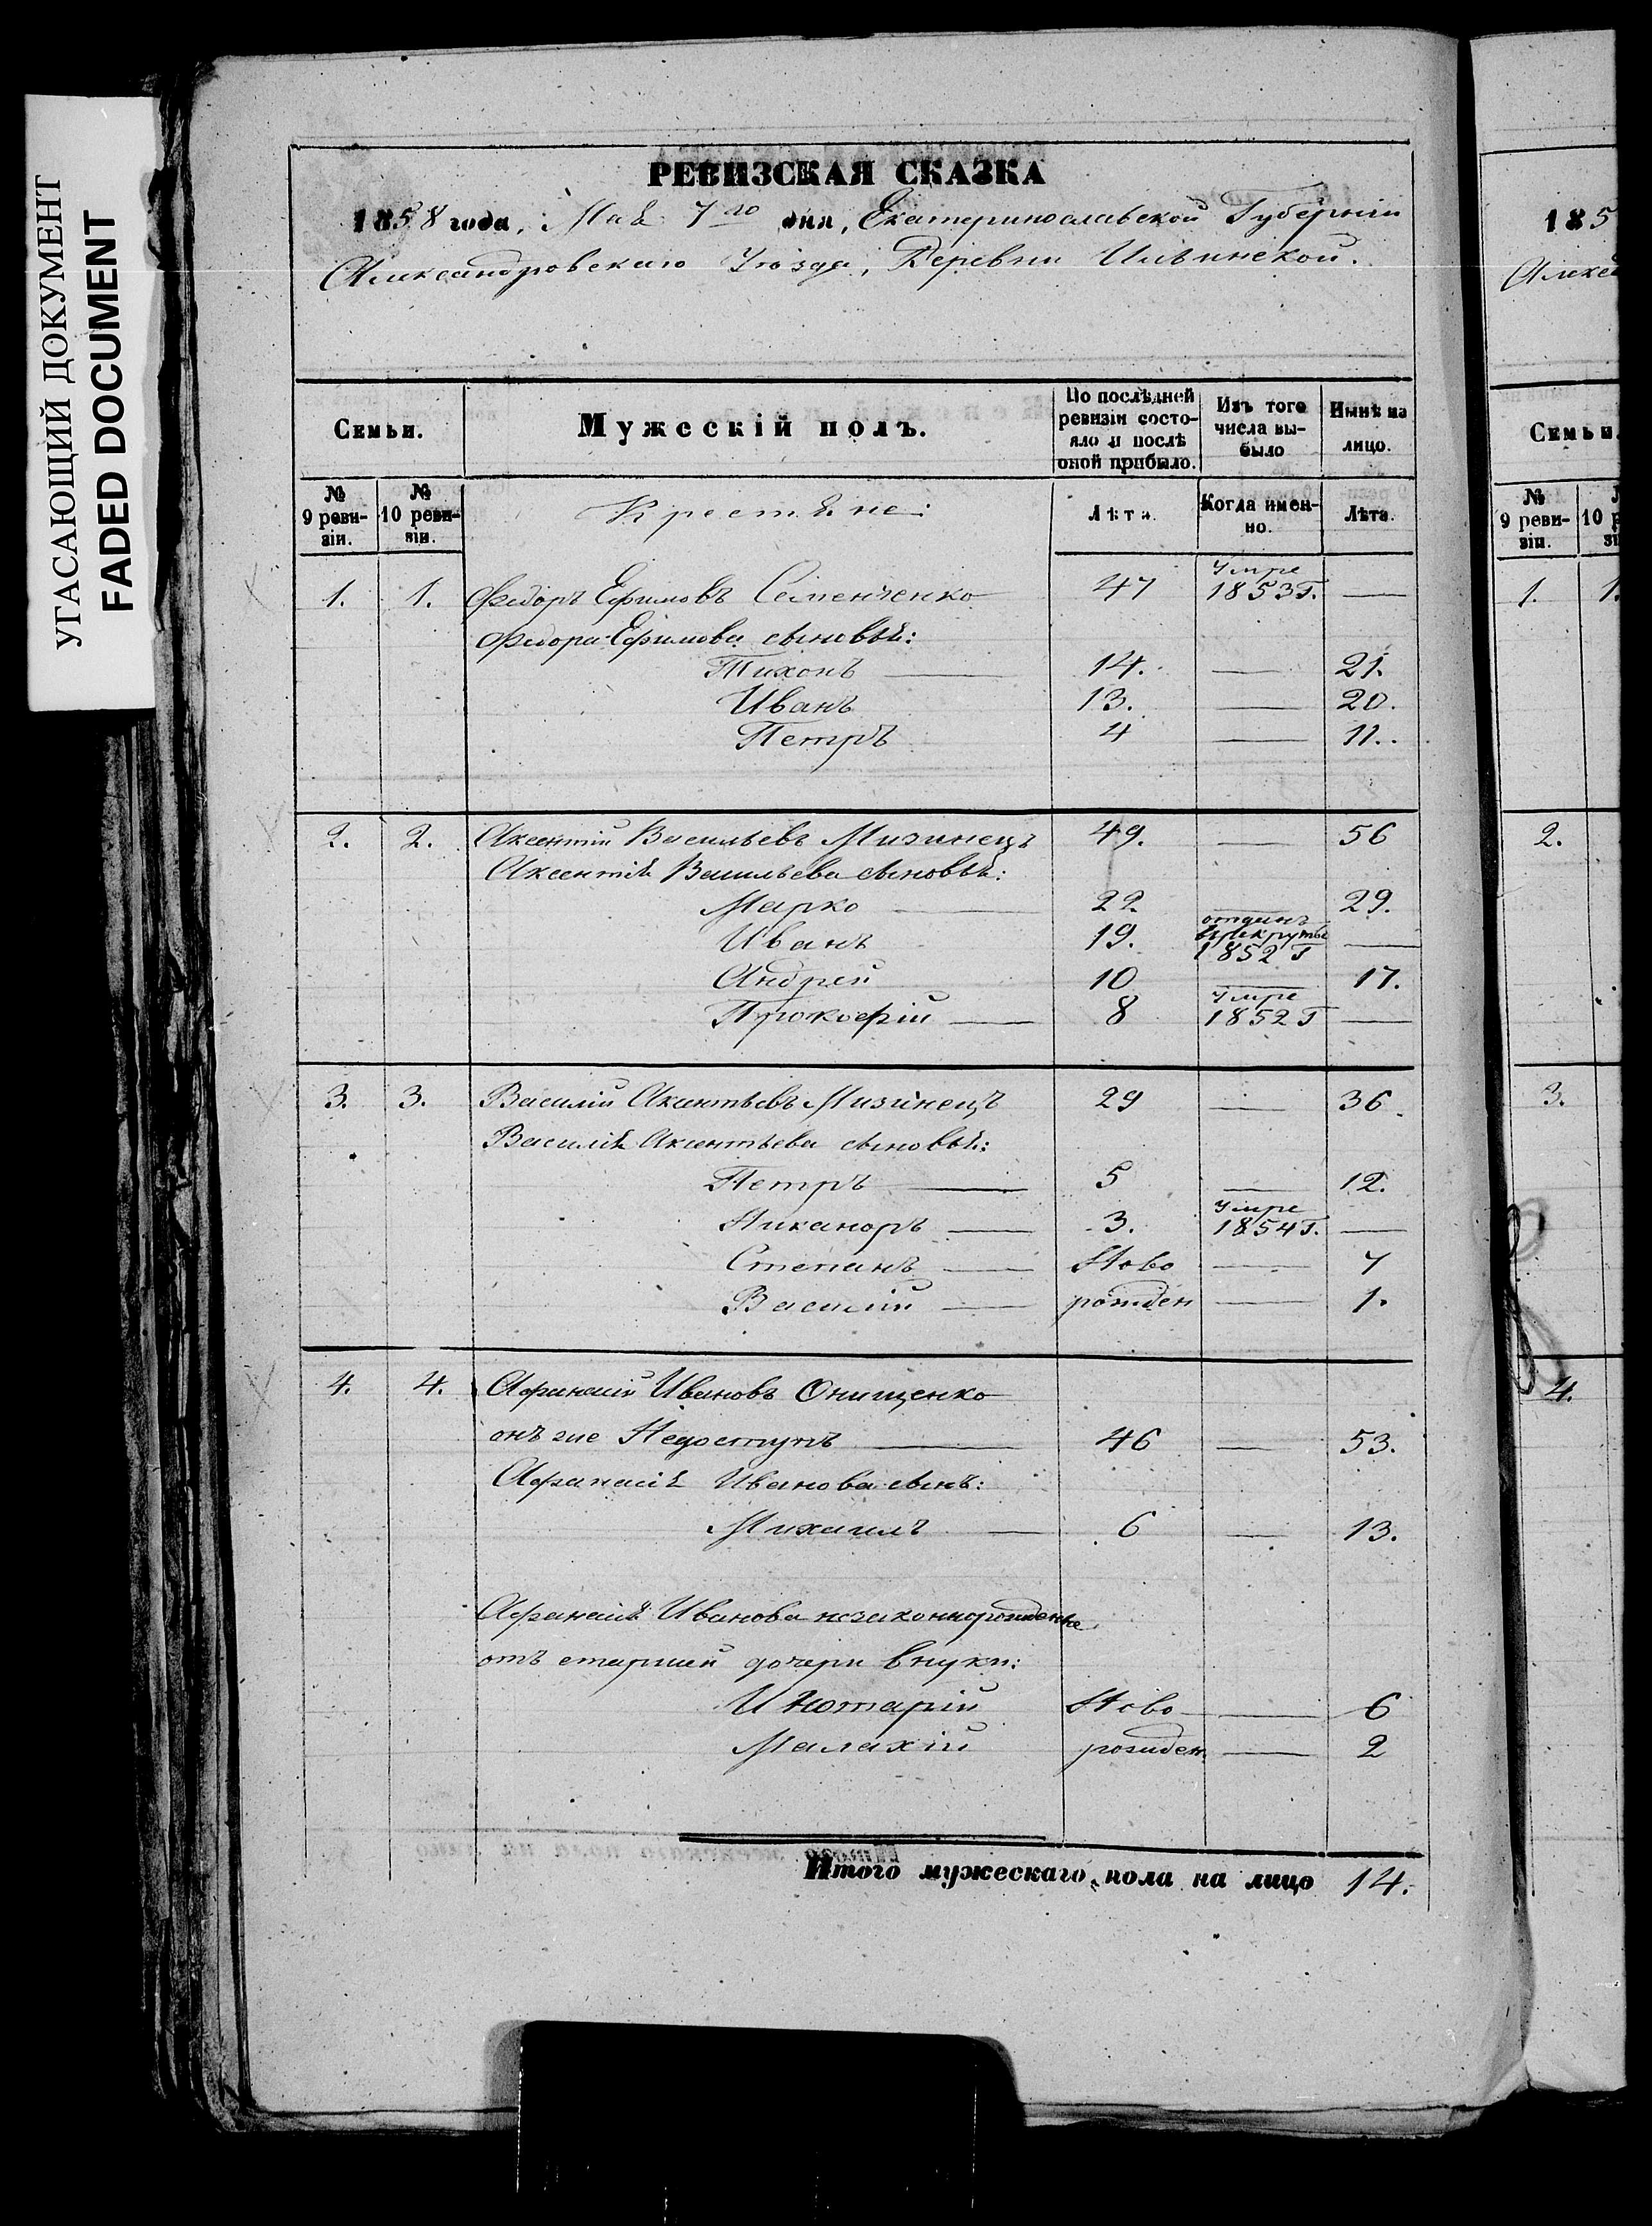 УГАСАЮЩИЙ ДОКУМЕНТ
FADED DOCUMENT
РЕВИЗСКАЯ СКАЗКА
1858 года, Маѧ 7го дня, Екатеринославской Губерніи
Александровскаго Уѣзда, Деревни Ильинской.
Семьи. Мужескій полъ. По послѣдней ревизіи состояло и послѣ оной прибыло. Изъ того числа выбыло Нынѣ на лицо.
№ 9 ревизіи. № 10 ревизіи. Крестьяне: Лѣта. Когда именно. Лѣта.
1. 1. Федоръ Ефимовъ Семенченко 47 Умре 1853 г. —
Федора Ефимова сыновья:
Тихонъ — 14. — 21.
Иванъ 13. — 20.
Петръ 4 — 11.
2. 2. Аксентій Васильевъ Мизинецъ 49. — 56
Аксентія Васильева сыновья:
Марко — 22 — 29.
Иванъ 19. отданъ в рекруты 1852 г —
Андрей 10 — 17.
Прокофій — 8 Умре 1852 г —
3. 3. Василій Аксентьевъ Мизинецъ 29 — 36.
Василія Аксентьева сыновья:
Петръ — 5 — 12.
Никаноръ — 3. Умре 1854 г. —
Степанъ — Ново — 7
Василій — рожден — 1.
4. 4. Афанасій Ивановъ Онищенко
онъ же Недоступъ — 46 — 53.
Афанасія Иванова сынъ:
Михаилъ — 6 — 13.
Афанасія Иванова незаконнорожденные
отъ старшей дочери внуки:
Ново — 6
Малахій рожден — 2
Итого мужескаго пола на лицо 14.
185
Алекса
Семьи.
№ 9 ревизіи.
1. 1.
2.
3.
4.